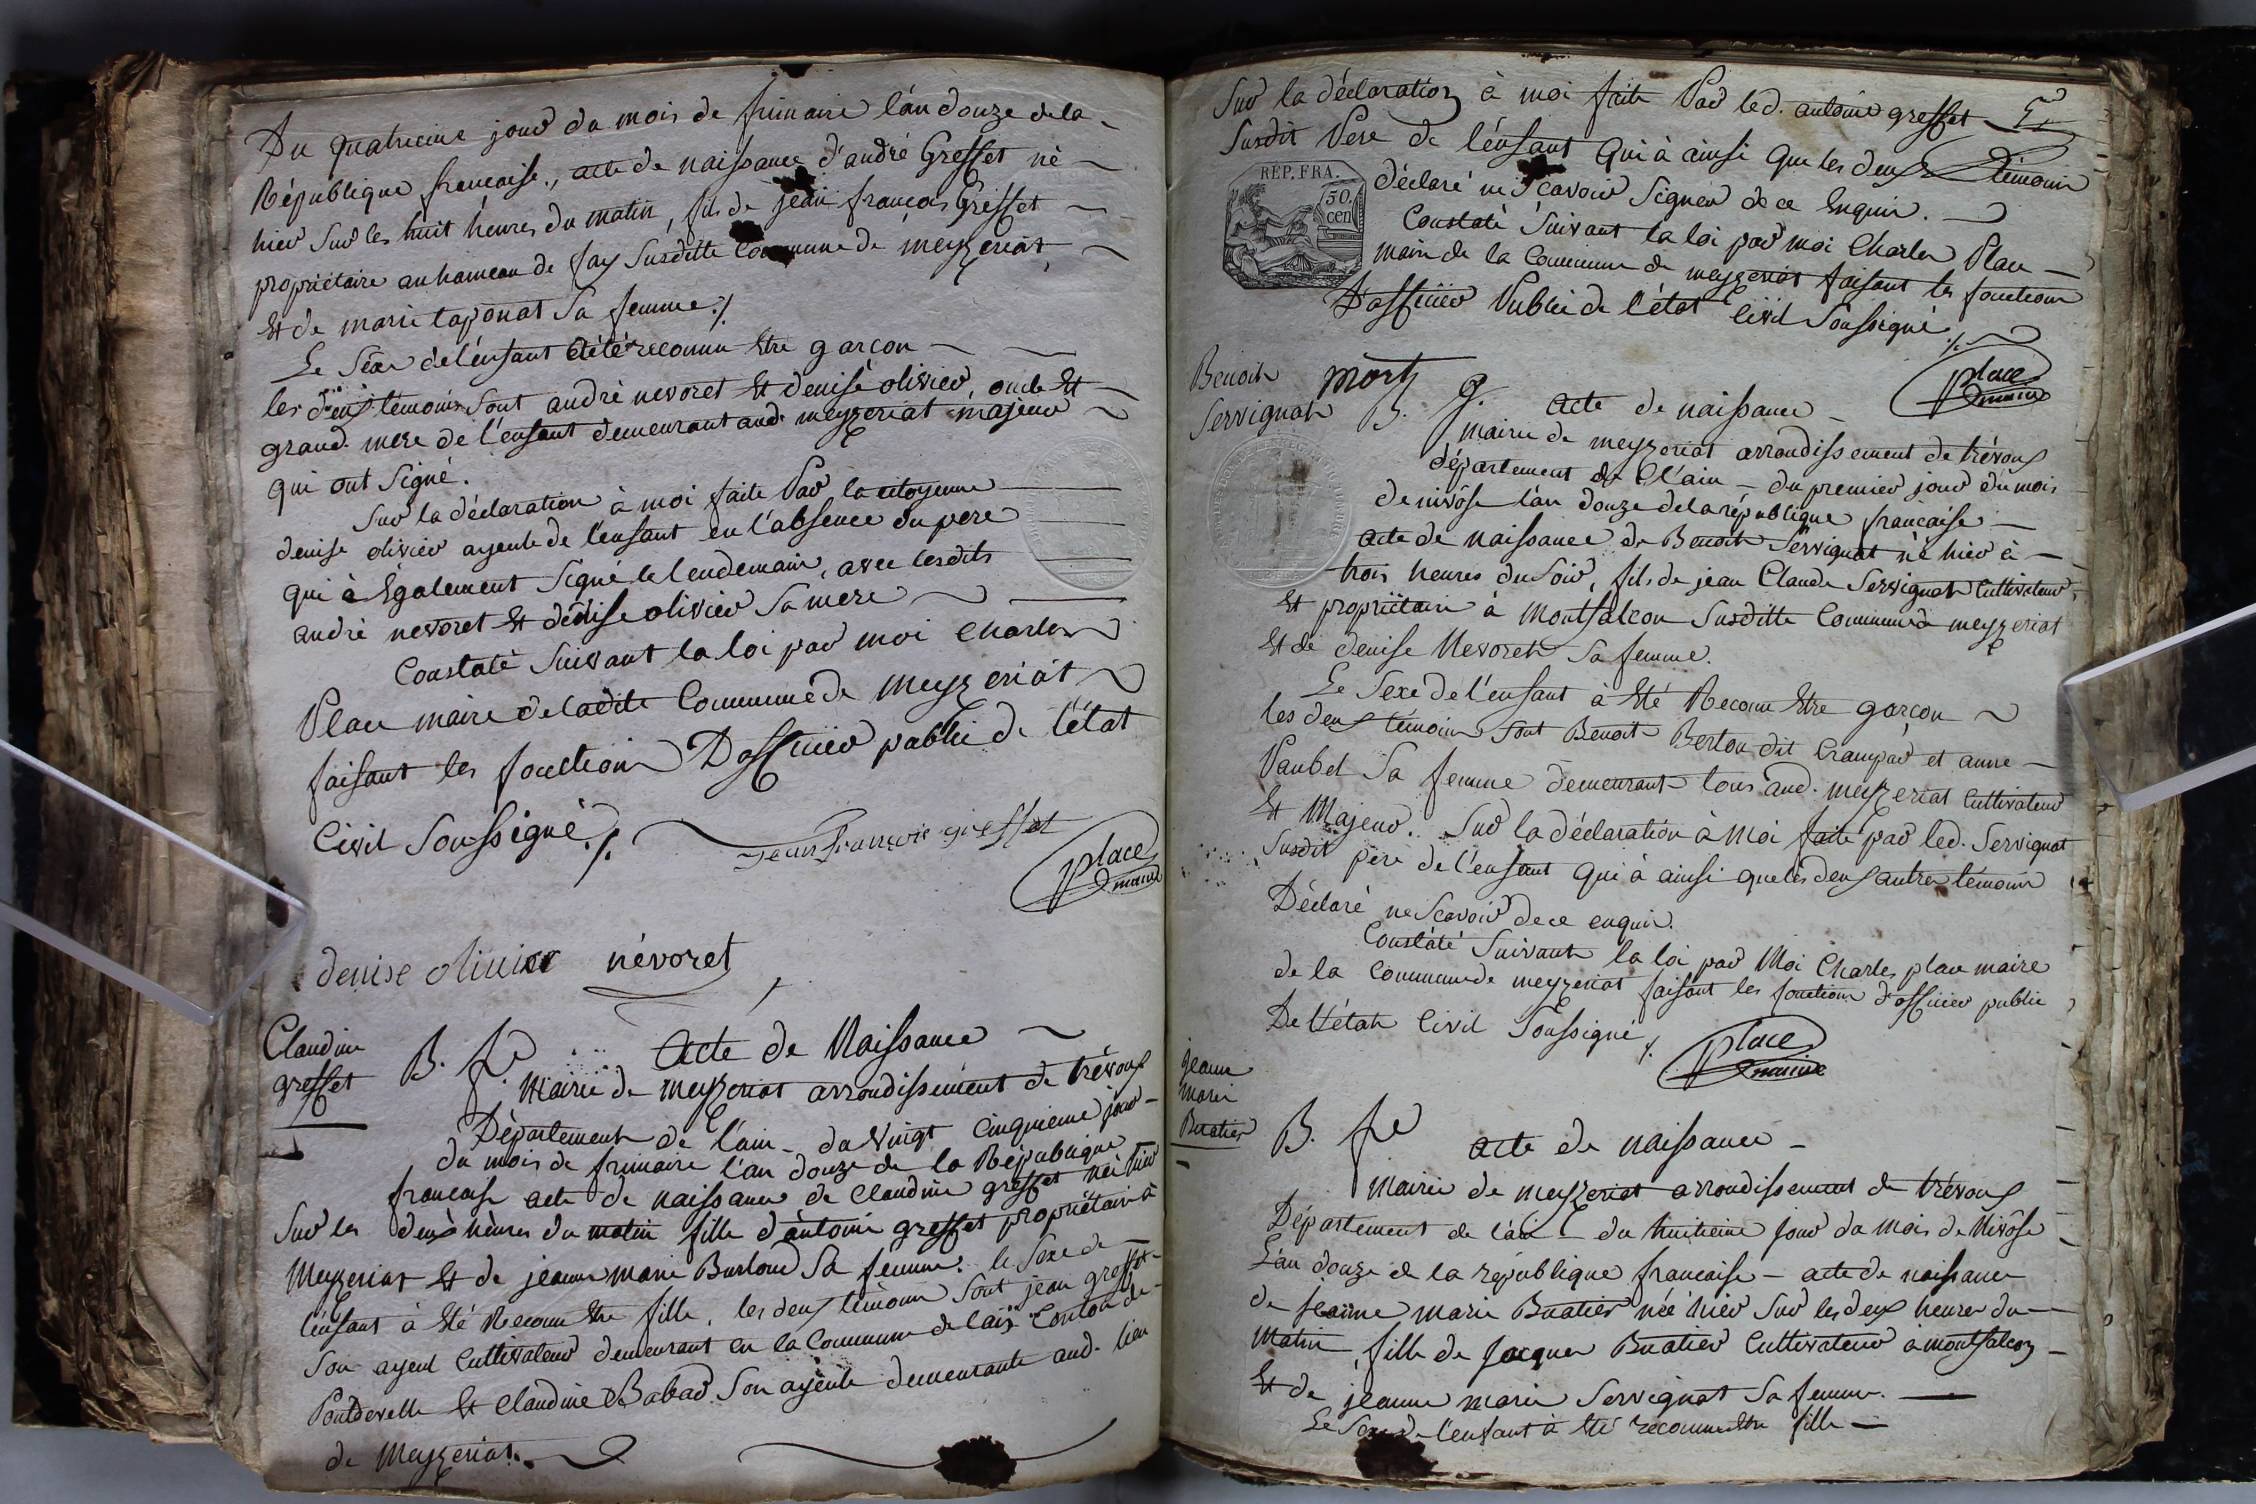 Du quatrieme jour du mois de frimaire l'an douze de la
République francaise, acte de naissance d'andré Gresset né
hier sur les huit heures du matin, fils de jean françois Gresset
propriétaire au hameau de fay susditte Commune de meyzeriat,
Et de marie taponat sa femme ./.
Le Sexe de l'enfant a été reconnu Etre garçon
les deux témoins sont andré nevoret Et denise olivier, oncle Et
grand. mere de l'enfant demeurant aud. meyzeriat majeur
qui ont signé.
Sur la déclaration à moi faite Par la citoyenne
denise olivier ayeule de l'enfant en l'absence du pere
qui à Egalement signé le lendemain, avec lesdits
andré nevoret Et denise olivier sa mere
Constaté suivant la loi par moi Charles
Place maire de ladite Commune de Meyzeriat
faisant les fonctions D'officier public de l'état
Civil Soussigné ./.
jean françois gresset
place
maire
denise olivier névoret
Claudine
gresset
B. fe
Acte de Naissance
Mairie de meyzeriat arrondissement de trévoux
Département de l'ain - du Vingt Cinquieme jour
du mois de frimaire l'an douze de la République
francaise acte de naissance de Claudine gresset née hier
Sur les deux hèures du matin fille d'antoine gresset propriétaire à
Meyzeriat Et de jeanne marie Burloud Sa femme. le Sexe de
l'enfant à Eté Reconu Etre fille, les deux témoins sont jean gresset
Son ayeul Cultivateur demeurant en la Commune de laix Canton de
Pontdevelle Et Claudine Babad Son ayeule demeurante aud. lieu
de Meyzeriat.
Sur la déclaration à moi faite Par led. antoine gresset
Susdit Pere de l'énfant Qui à ainsi Que les deux témoins
REP. FRA.
50.
cen
déclaré ne Scavoir Signer de ce Enquis.
Constaté Suivant la loi par moi Charles Place
maire de la Commune de meyzeriat faisant les fonctions
D'officier Public de l'état Civil Soussigné ./.
place
maire
Benoit
Servignat
mort
B. g.
Acte de naissance
Mairie de meyzeriat arrondissement de trévoux
département de l'ain - du premier jour du mois
de nivôse l'an douze de la république francaise
acte de naissance de Benoit Servignat né hier à
trois heures du Soir, fils de jean Claude Servignat Cultivateur,
Et propriétaire à Montfalcon Susditte Commune de meyzeriat
Et de denise Nevoret Sa femme.
Le Sexe de l'enfant à Eté Reconu Etre garçon
les deux témoins sont Benoit Berton dit Crampar et anne
Vaubet Sa femme demeurant tous aud. meyzeriat Cultivateur
Et Majeur. Sur la déclaration à Moi faite par led. Servignat
Susdit père de l'enfant Qui à ainsi que les deux autres témoins
Déclaré ne Scavoir de ce enquis.
Constaté Suivant la loi par Moi Charles place maire
de la Commune de meyzeriat faisant les fonctions d'officier public
De L'état Civil Soussigné ./.
place
maire
jeanne
marie
Buatier
B. fe
acte de naissance
Mairie de meyzeriat arrondissement de trévoux
Département de l'ain du huitieme jour du mois de Nivôse
L'an douze de la république francaise - acte de naissance
de jeanne marie Buatier née hier Sur les deux heures du
Matin, fille de Jacques Buatier Cultivateur à montfalcon
Et de jeanne marie Servignat Sa femme.
Le Sexe de l'enfant à Eté reconnu Etre fille